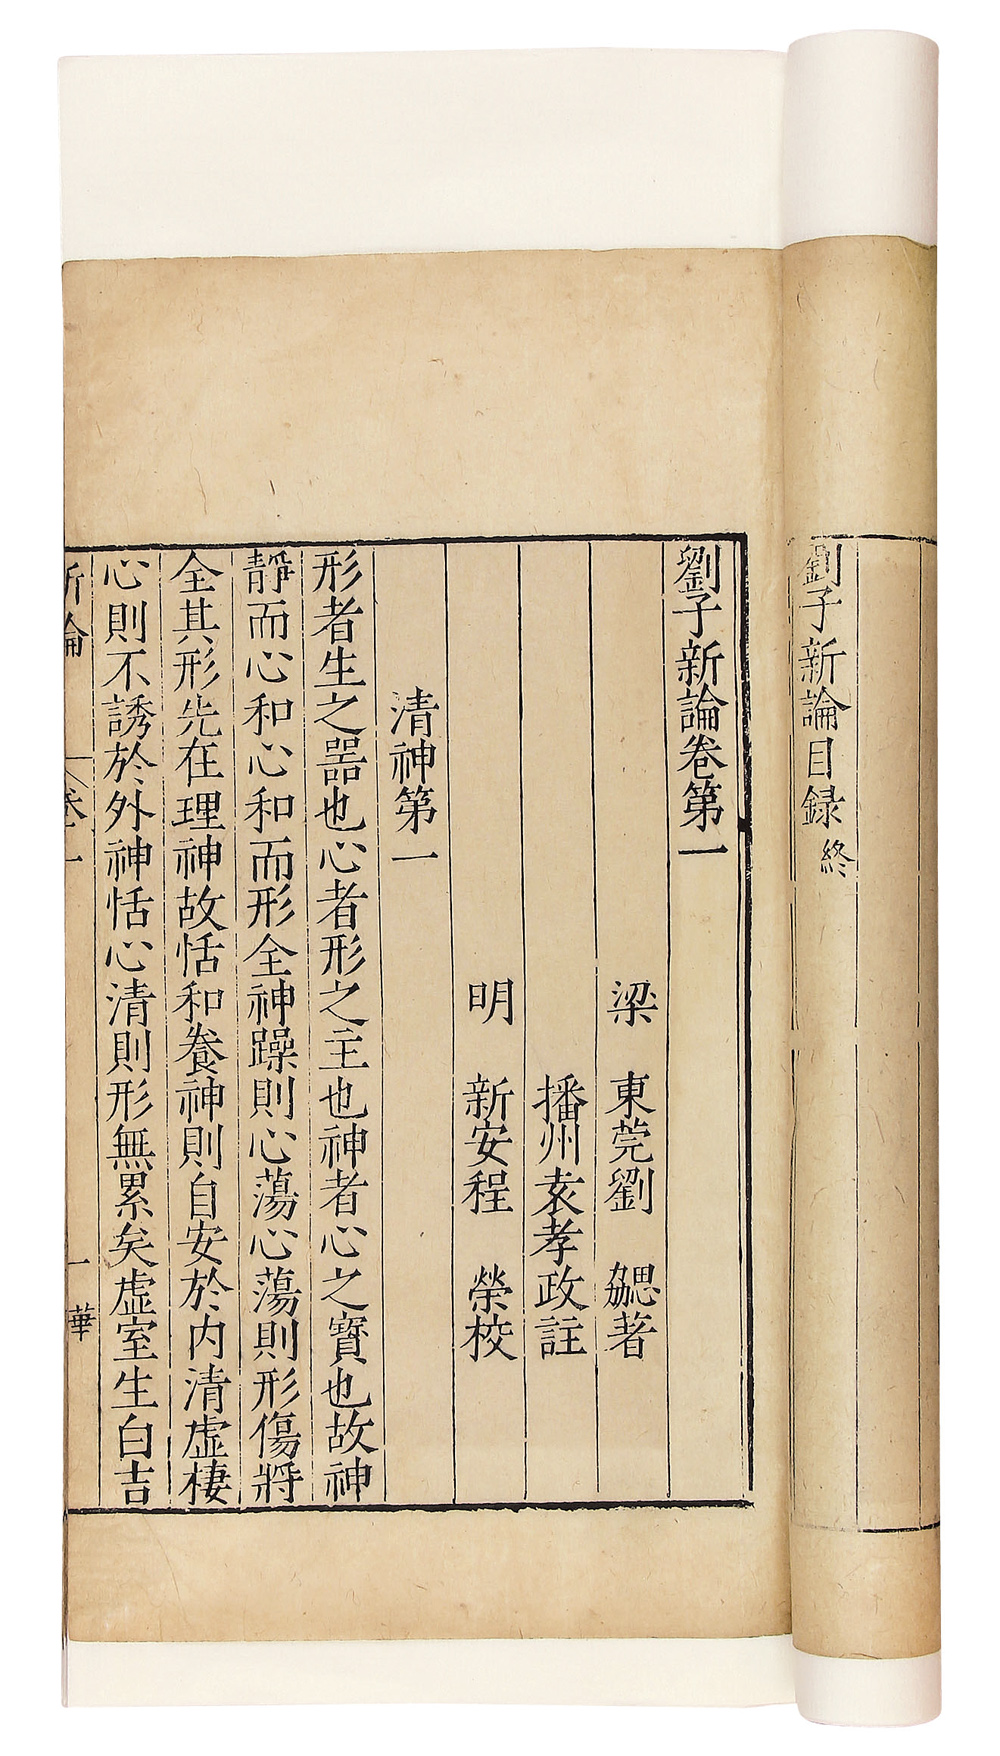 劉子新論目録終
劉子新論卷第一
梁 東莞劉 勰著
播州袁孝政註
明 新安程 榮校
清神第一
形者生之噐也心者形之主也神者心之寶也故神
靜而心和心和而形全神躁則心蕩心蕩則形傷將
全其形先在理神故恬和養神則自安於内清虛棲
心則不誘於外神恬心清則形無累矣虛室生白吉
新論 卷一 一 華